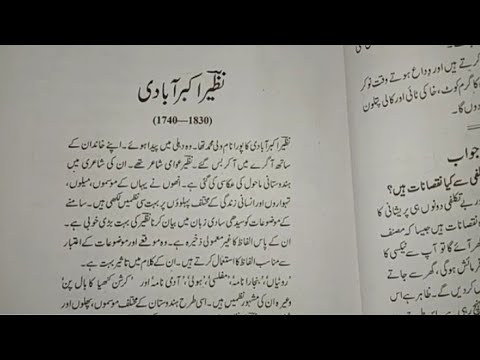 نظیرؔ اکبر آبادی
(1740—1830)
نظیرؔ اکبر آبادی کا پورا نام ولی محمد تھا۔ وہ دہلی میں پیدا ہوئے۔ اپنے خاندان کے
ساتھ آگرے میں آ کر بس گئے۔ نظیرؔ عوامی شاعر تھے۔ ان کی شاعری میں
ہندوستانی ماحول کی عکاسی کی گئی ہے۔ انھوں نے یہاں کے موسموں، میلوں،
تہواروں اور انسانی زندگی کے مختلف پہلوؤں پر بہت سی نظمیں لکھی ہیں۔ سامنے
کے موضوعات کو سیدھی سادی زبان میں بیان کرنا نظیرؔ کی بہت بڑی خوبی ہے۔
ان کے پاس الفاظ کا غیر معمولی ذخیرہ ہے۔ وہ موقعے اور موضوعات کے اعتبار
سے مناسب الفاظ کا استعمال کرتے ہیں۔ ان کے کلام میں تاثیر بہت ہے۔
'روٹیاں'، 'بنجارا نامہ'، 'مفلسی'، 'ہولی'، 'آدمی نامہ' اور 'کرشن کنھیا کا بال پن'
وغیرہ ان کی مشہور نظمیں ہیں۔ اسی طرح ہندوستان کے مختلف موسموں، پھلوں اور
کرتے ہیں اور وداع ہوتے وقت نوکر
کا گرم کوٹ، خاکی ٹائی اور کالی پتلون
دوں گا۔
جواب
تکلفی سے کیا نقصانات ہیں؟
ر بے تکلفی دونوں ہی پریشانی کا
نقصانات ہیں جیسا کہ مصنف
گھر آئے گا تو آپ سے ٹیکسی کا
فرمائش ہوگی، گھر سے جاتے
یں کردیں گے۔ ظاہر ہے اس